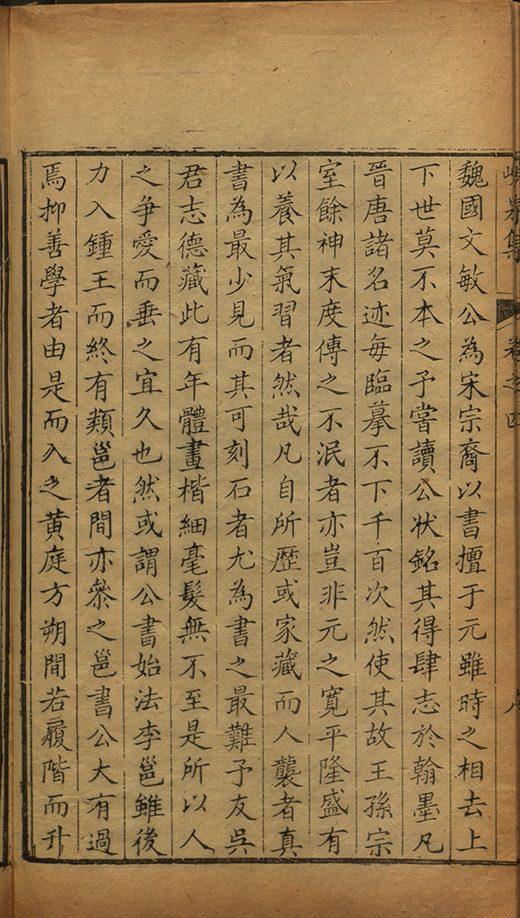 峴泉集 卷之四 八
魏國文敏公為宋宗裔以書擅于元雖時之相去上
下世莫不本之予嘗讀公狀銘其得肆志於翰墨凡
晉唐諸名迹每臨摹不下千百次然使其故王孫宗
室餘神末度傳之不泯者亦豈非元之寬平隆盛有
以養其氣習者然哉凡自所歷或家藏而人襲者真
書為最少見而其可刻石者尤為書之最難予友吳
君志德藏此有年體畫楷細毫髮無不至是所以人
之爭愛而垂之宜久也然或謂公書始法李邕雖後
力入鍾王而終有類邕者間亦叅之邕書公大有過
焉抑善學者由是而入之黃庭方朔間若履階而升